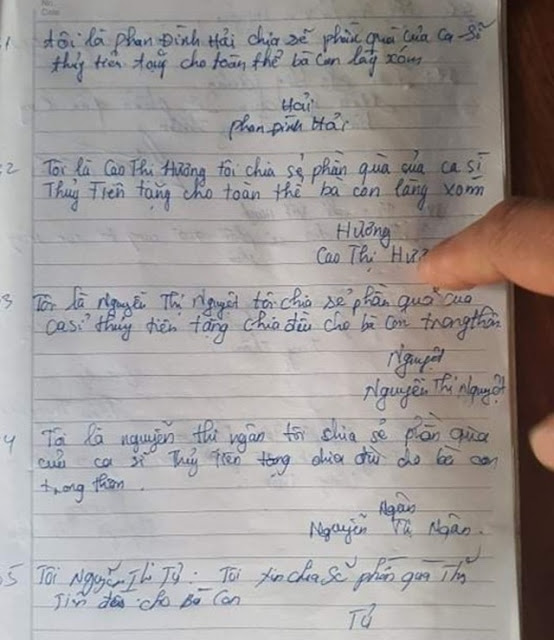 1 tôi là phan Đình Hải chia sẽ phần quà của ca sĩ
thủy tiên tặng cho toàn thể bà con láng xóm
Hải
phan Đình Hải
2 Tôi là Cao Thị Hương tôi chia sẻ phần quà của ca sĩ
Thuỷ Tiên tặng cho toàn thể bà con láng xóm
Hương
Cao Thị Hươ
3 Tôi là Nguyễn Thị Nguyệt tôi chia sẻ phần quà của
ca sĩ thủy tiên tặng chia đều cho bà con trong thôn
Nguyệt
Nguyễn Thị Nguyệt
4 Tôi là nguyễn thị ngân tôi chia sẻ phần quà
của ca sĩ Thủy tiên tặng chia đều cho bà con
trong thôn.
Ngân
Nguyễn Thị Ngân.
5 Tôi Nguyễn Thị Tứ: Tôi xin chia sẽ phần quà Thủy
Tiên đều cho Bà Con
Tứ